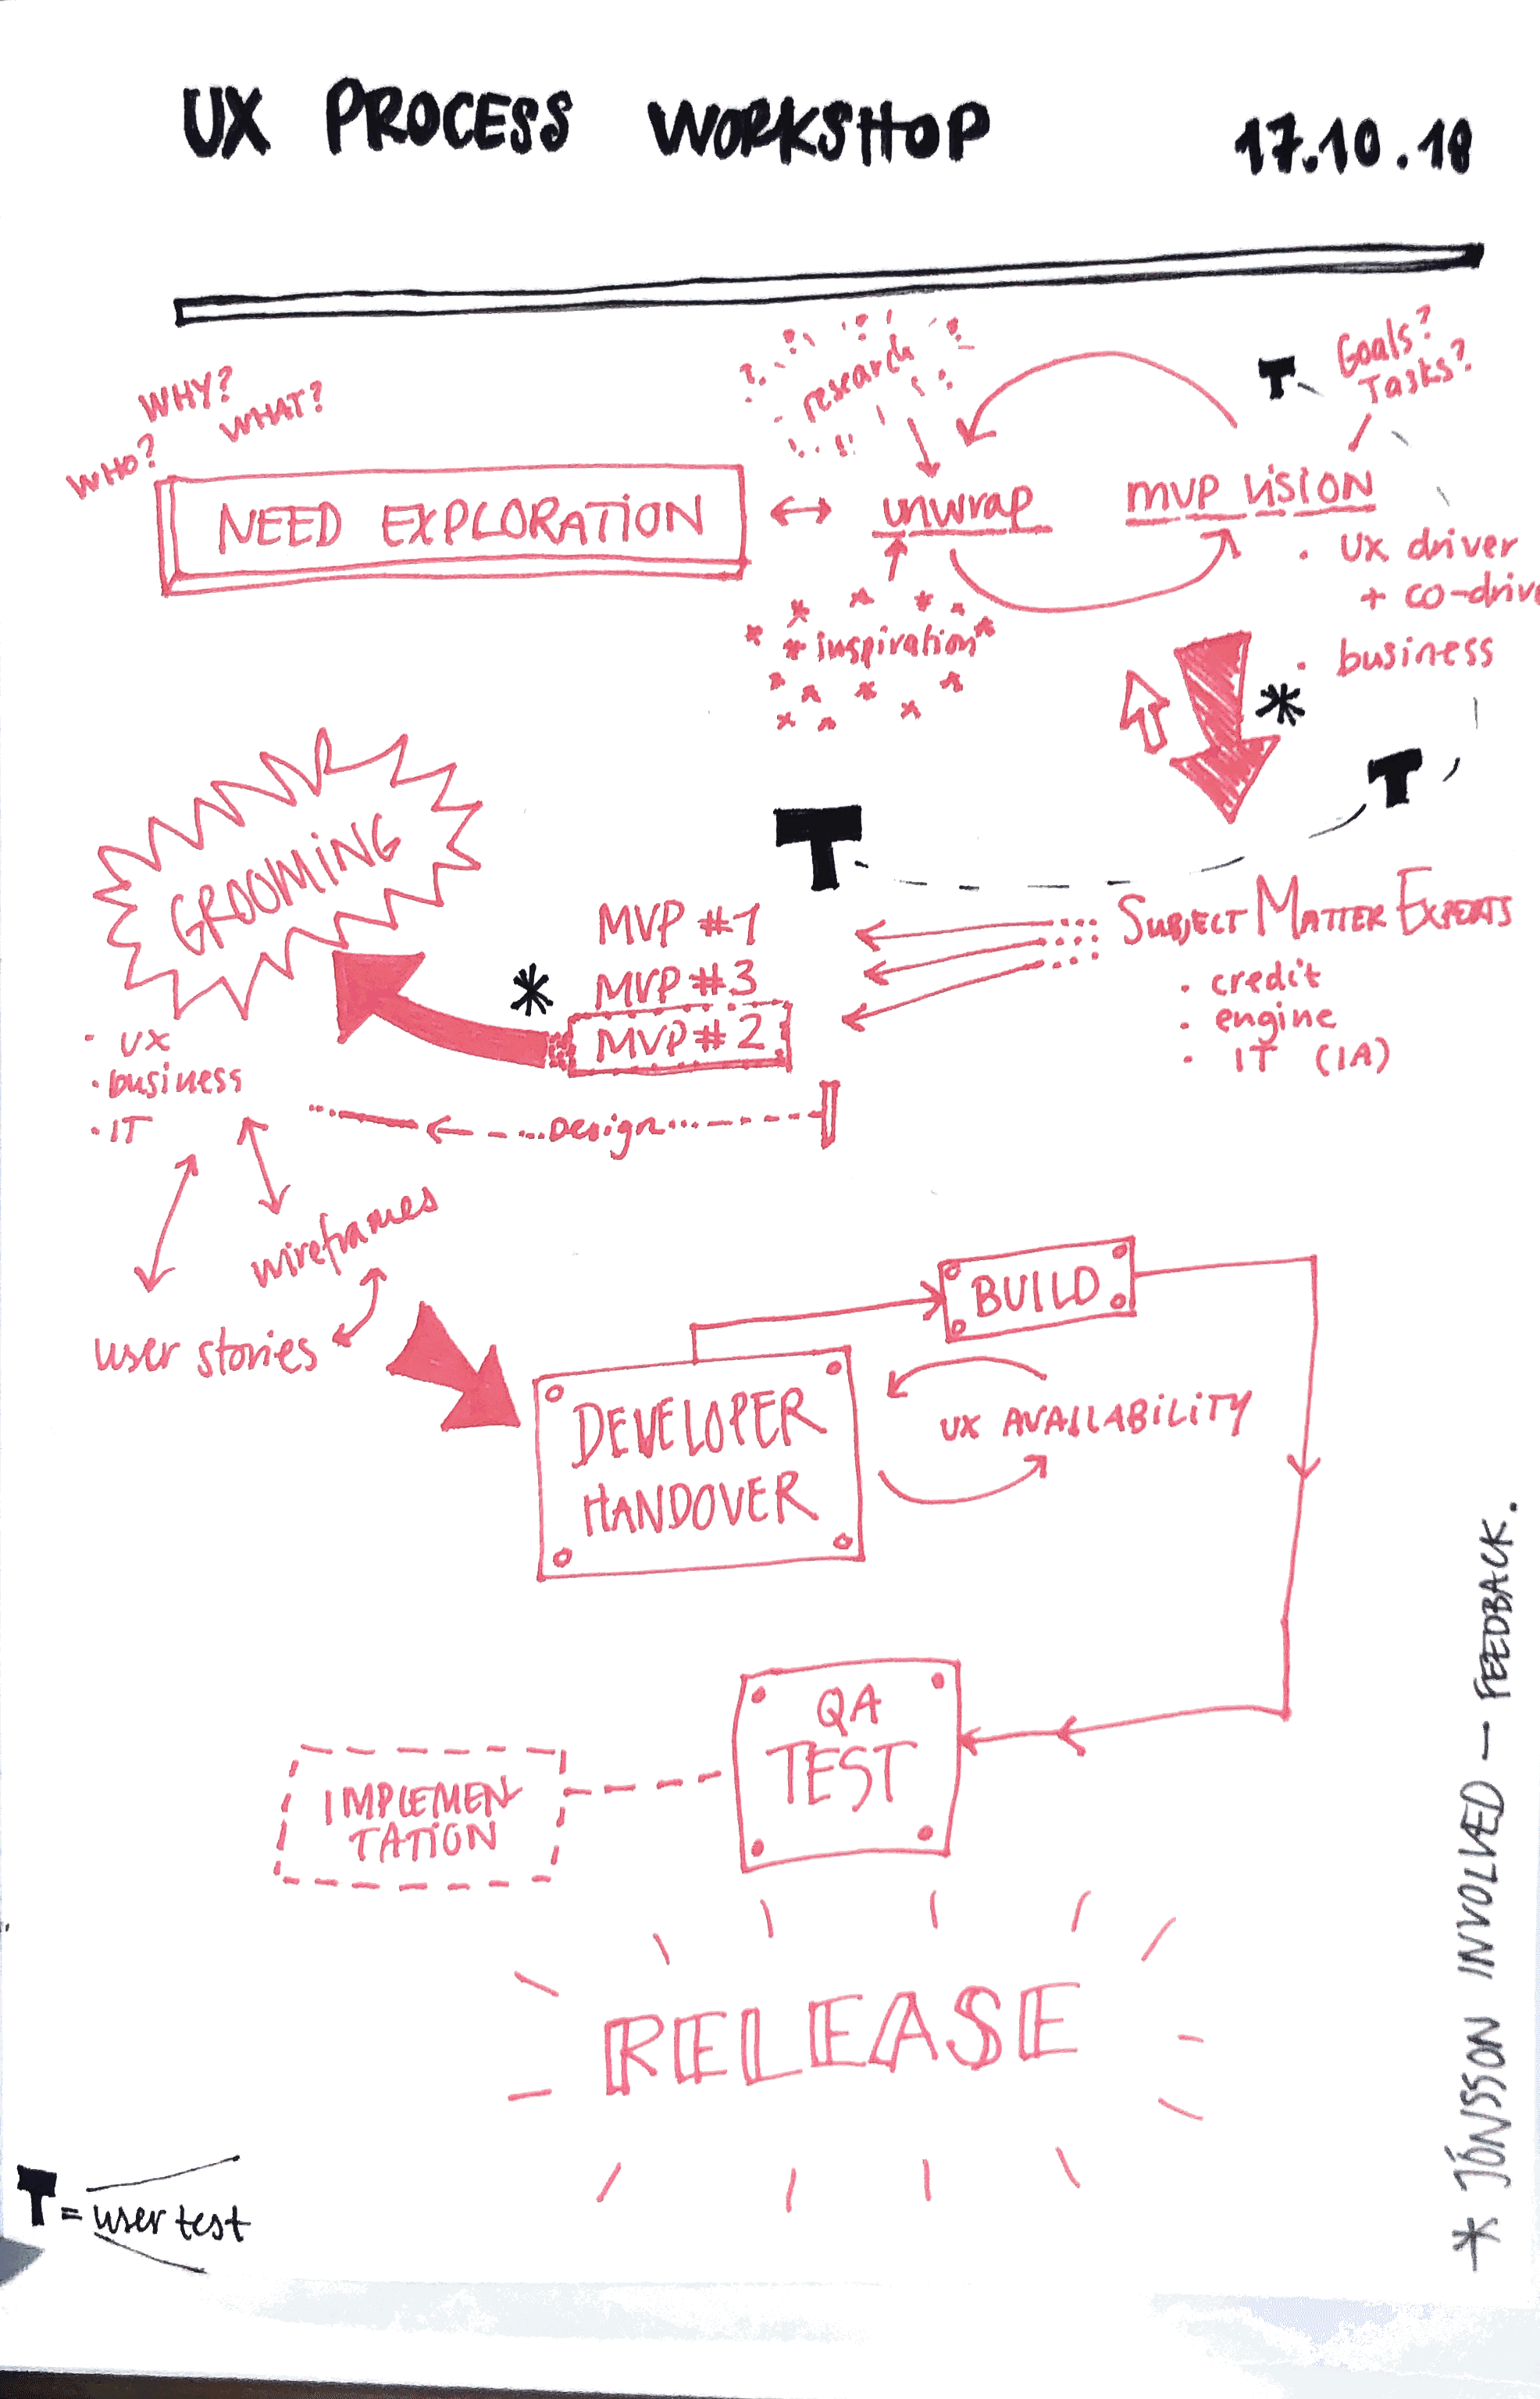 UX PROCESS WORKSHOP 17.10.18
WHY?
WHAT?
WHO?
NEED EXPLORATION
research
unwrap
inspiration
T
Goals?
Tasks?
MVP VISION
• UX driver
+ co-drive
• business
*
T
T
SUBJECT MATTER EXPERTS
• credit
• engine
• IT (IA)
MVP #1
MVP #3
MVP #2
*
GROOMING
• UX
• business
• IT
Design
wireframes
user stories
DEVELOPER
HANDOVER
BUILD
UX AVAILABILITY
QA
TEST
IMPLEMEN
TATION
RELEASE
T = user test
* JÓNSSON INVOLVED – FEEDBACK.